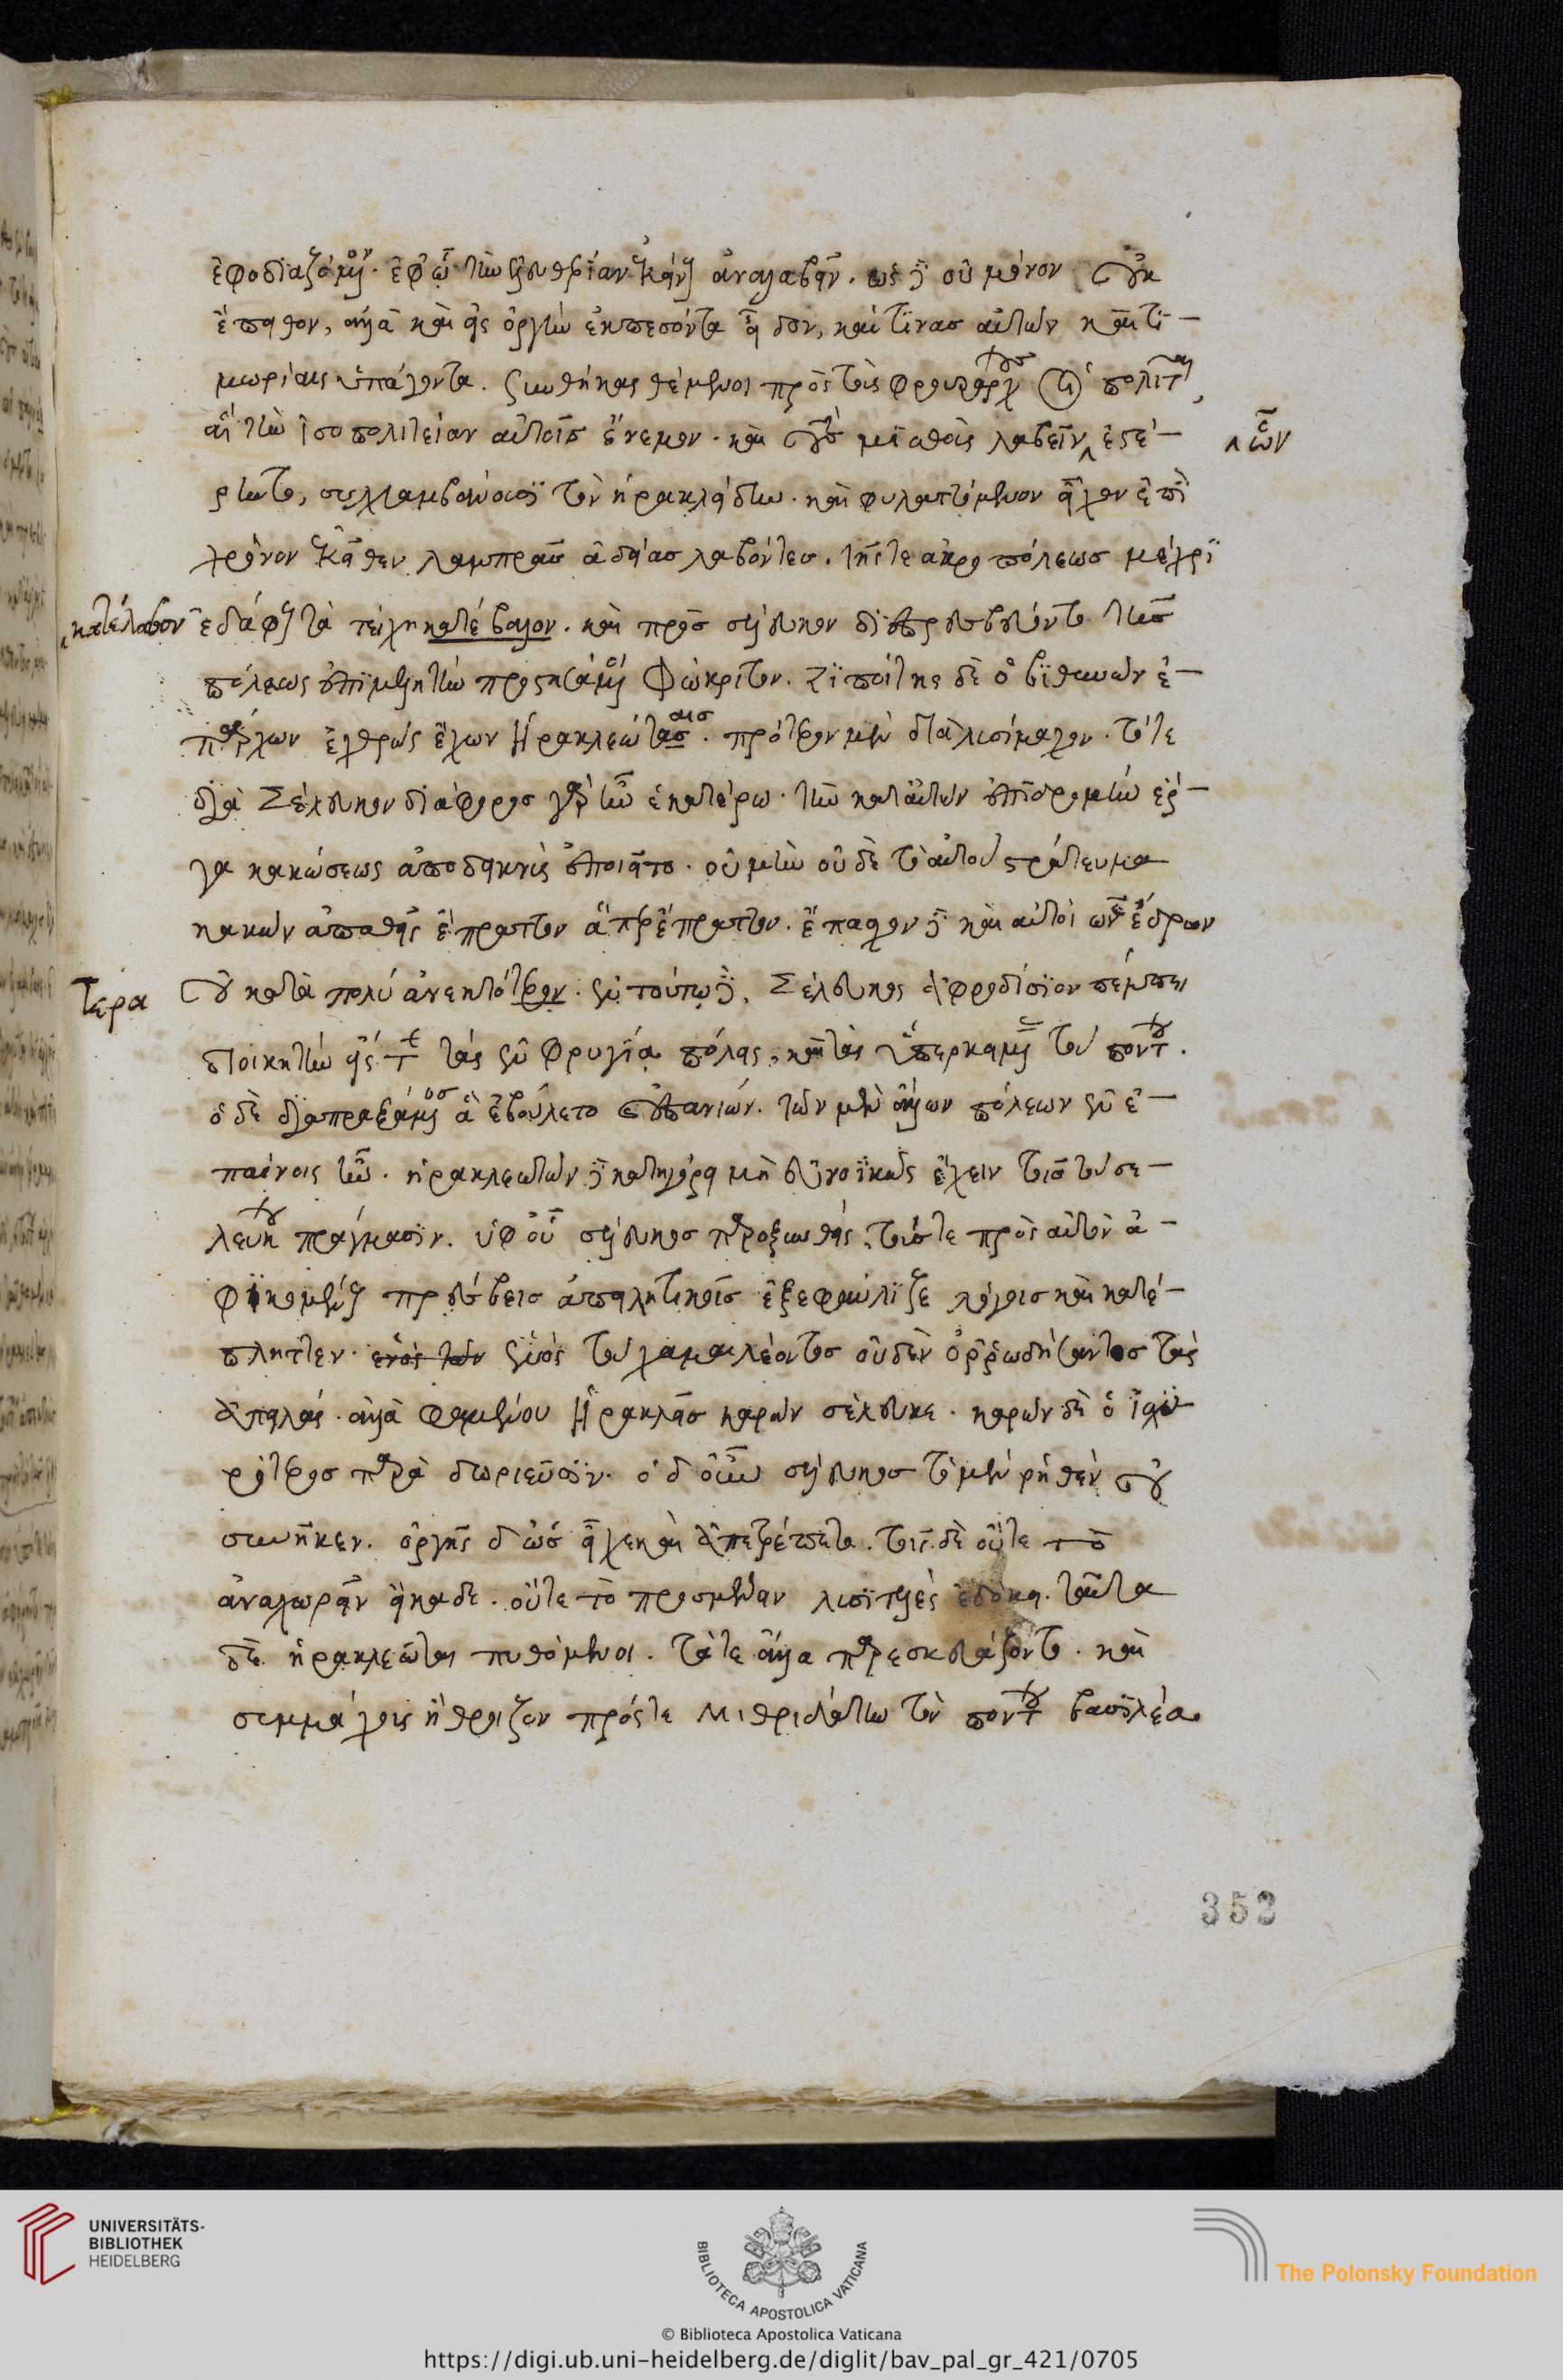 ἐφοδιαζόμενοι. ἐφ ᾧ τὴν ἐλευθερίαν ἐκείνους ἀναλαβεῖν. ὡς δὲ οὐ μόνον οὐκ
ἔπειθον, ἀλλὰ καὶ εἰς ὀργὴν ἐκπεσόντα εἶδον, καί τινας αὐτῶν καὶ τι-
μωρίαις ὑπάγοντα. συνθήκας θέμενοι πρὸς τοὺς φρουράρχους οἱ πολῖται,
αἳ τὴν ἰσοπολιτείαν αὐτοῖς ἔνεμον. καὶ τοὺς μισθοὺς λαβεῖν ἐστέ-
ὧν
ρηντο, συλλαμβάνουσι τὸν ἡρακλείδην. καὶ φυλαττόμενον εἶχον ἐπὶ
χρόνον ἐκεῖθεν λαμπρᾶς ἀδείας λαβόντες. τῆς τε ἀκροπόλεως μέχρι
κατέλαβον ἐδάφους τὰ τείχη κατέβαλον. καὶ πρὸς σέλευκον διαπρεσβεύονται τῆς
πόλεως ἐπιμελητὴν προστησάμενοι Φώκριτον. Ζιποίτης δὲ ὁ βιθυνῶν ἐ-
πάρχων ἐχθρῶς ἔχων Ἡρακλεώταις. πρότερον μὲν διὰ λυσίμαχον. τότε
διὰ Σέλευκον διάφορος γὰρ ἦν ἑκατέρω. τὴν κατ αὐτῶν ἐπιδρομὴν ἔρ-
γα κακώσεως ἀποδεικνὺς ἐποιεῖτο. οὐ μὴν οὐδὲ τὸ αὐτοῦ στράτευμα
κακῶν ἀπαθεῖς ἔπραττον ἅπερ ἔπραττον. ἔπασχον δὲ καὶ αὐτοὶ ὧν ἔδρων
τερα οὐ κατὰ πολὺ ἀνεκτότερον. ἐν τούτω δὲ. Σέλευκος ἀφροδίσιον πέμπει
διοικητὴν εἴς τε τὰς ἐν φρυγία πόλεις, καὶ τὰς ὑπερκειμένας τοῦ πόντου.
ὁ δὲ διαπραξάμενος ἃ ἐβούλετο ἐπανιών. τῶν μὲν ἄλλων πόλεων ἐν ἐ-
παίνοις ἦν. ἡρακλεωτῶν δὲ κατηγόρει μὴ εὐνοϊκῶς ἔχειν τοῖς τοῦ σε-
λεύκου πράγμασιν. ὑφ οὗ σέλευκος παροξυνθεὶς, τούς τε πρὸς αὐτὸν ἀ-
φικομένους πρέσβεις ἀπειλητικοῖς ἐξεφαύλιζε λόγοις καὶ κατέ-
πληττεν. ἑνὸς τοῦ χαμαιλέοντος οὐδὲν ὀρρωδήσαντος τὰς
ἀπειλάς. ἀλλὰ φαμένου Ἡρακλῆς καρρων σέλευκε. καρρων δὲ ὁ ἰσχυ
ρότερος παρὰ δωριεῦσιν. ὁ δ οὖν σέλευκος τὸ μὲν ῥηθὲν οὐ
συνῆκεν. ὀργῆς δ ὡς εἶχε καὶ ἀπετρέπετο. τοῖς δὲ οὔτε τὸ
ἀναχωρεῖν οἴκαδε. οὔτε τὸ προσμένειν λυσιτελὲς ἐδόκει. ταῦτα
δὲ ἡρακλεῶται πυθόμενοι. τά τε ἄλλα παρεσκευάζοντο. καὶ
συμμάχους ἤθροιζον πρός τε Μιθριδάτην τὸν πόντου βασιλέα
352
UNIVERSITÄTS-
BIBLIOTHEK
HEIDELBERG
BIBLIOTECA APOSTOLICA VATICANA
The Polonsky Foundation
© Biblioteca Apostolica Vaticana
https://digi.ub.uni-heidelberg.de/diglit/bav_pal_gr_421/0705